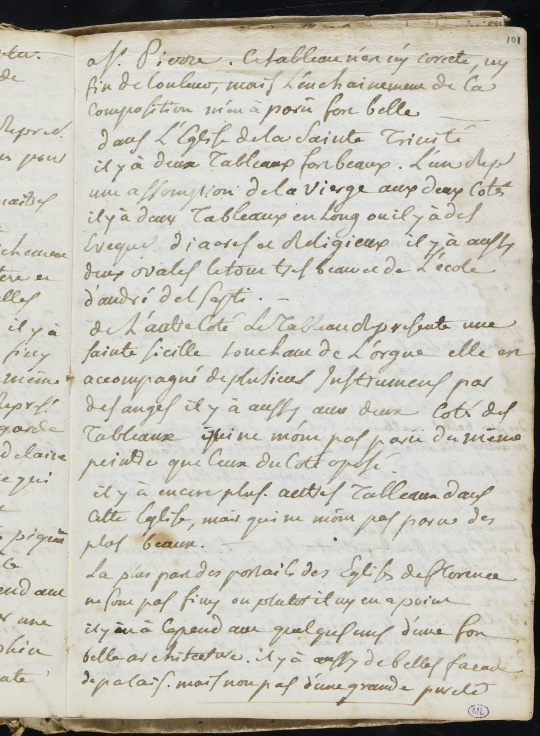 101
a St. Pierre. Ce tableau n'en ny corecte, ny
fin de Couleur, mais L'enchainement de la
Composition m'en à paru fort belle
dans L'Eglise de la Sainte Trinité
il y à deux Tableaux fort beaux. L'un Repr.
une assomption de la vierge aux deux Cotés
il y à deux Tableaux en Long ou il y à des
Eveques diacres et Religieux il y à aussy
deux ovales le tout tres beau et de L'école
d'andré del Sarti.
de L'autre Coté Le Tableau Represente une
Sainte Sicille touchant de L'orgue elle en
accompagné de plusieurs Instrumens par
des anges il y à aussy aux deux Coté des
Tableaux qui ne m'ont pas paru du même
peintre que Ceux du Coté oposé
il y à encore plus. autres Tableaux dans
Cette Eglise, mais qui ne m'ont pas parus des
plus beaux.
La plus part des portails des Eglises de florence
ne sont pas finy ou plutot il ny en a point
il y en à Cependant quelques uns d'une bon
belle architecture. il y à aussy de belles facade
de palais. mais non pas d'une grande pureté